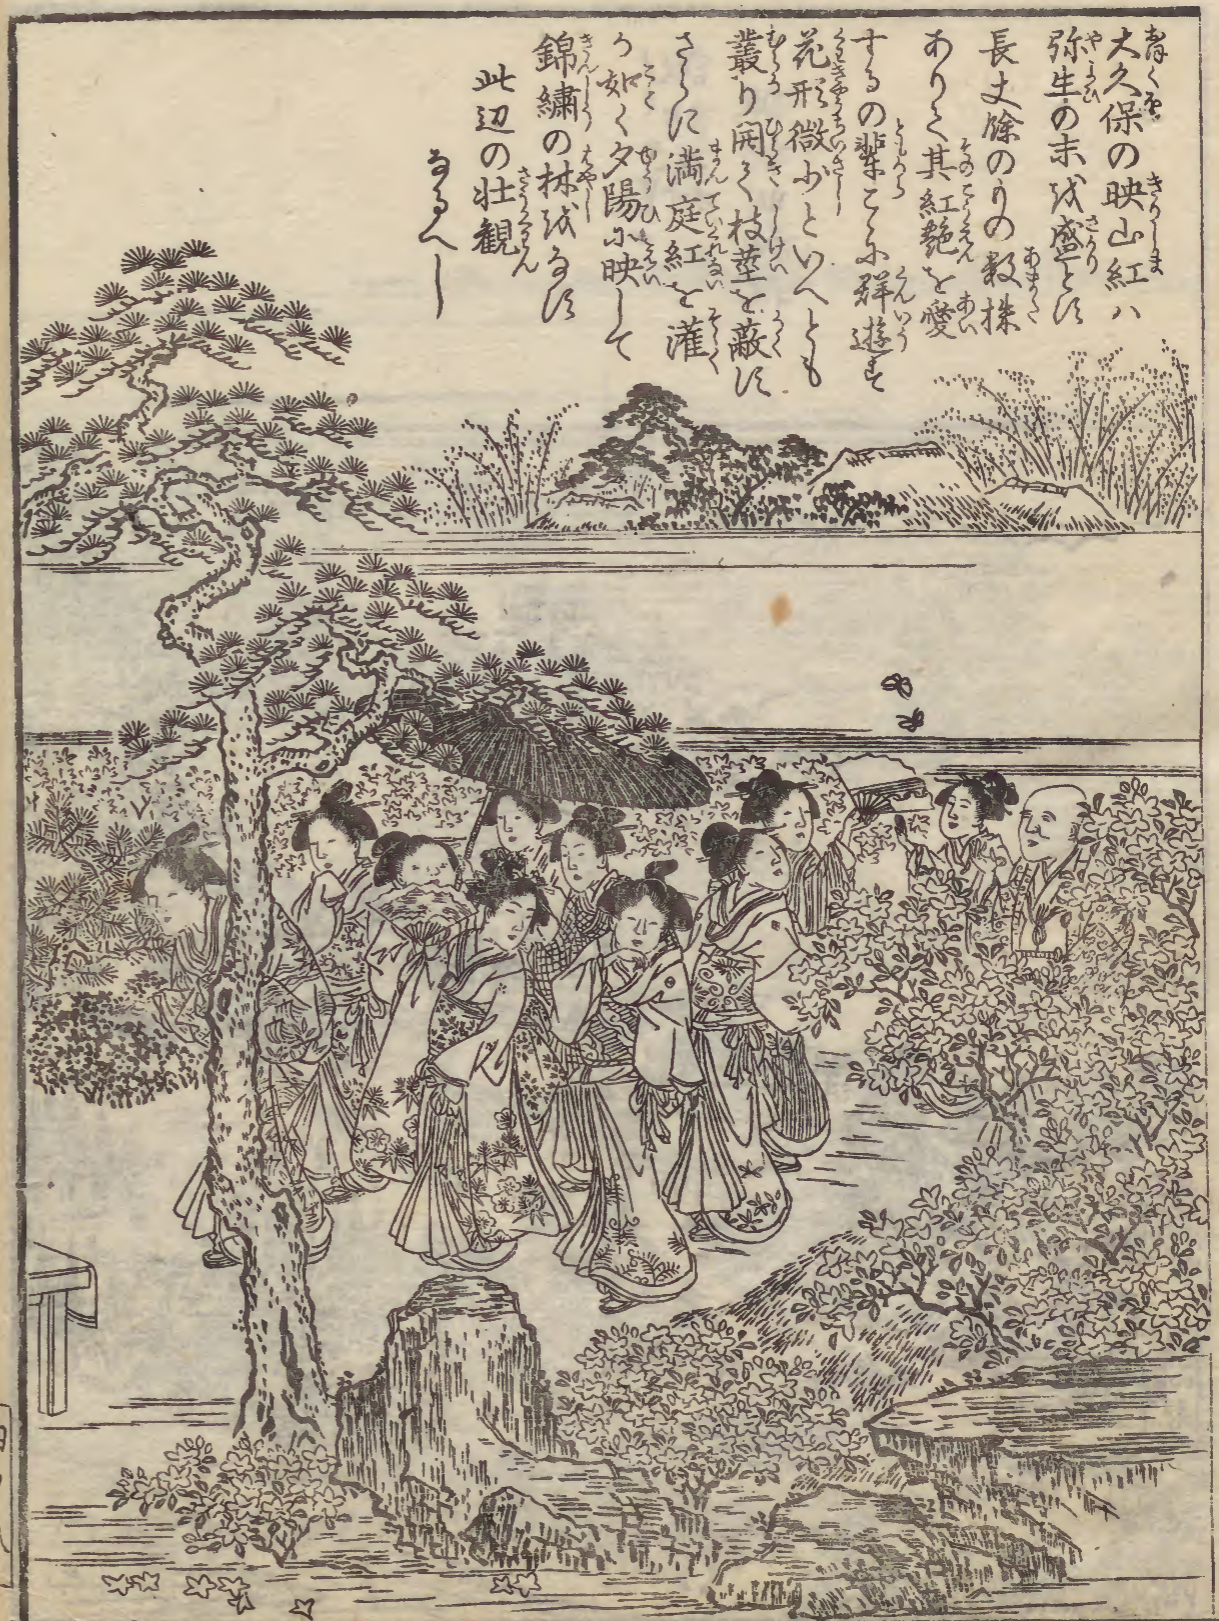 大久保の映山紅ハ
弥生の末を盛とす
長丈餘のもの数株
ありて其紅艶を愛
するの輩こゝに群遊す
花形微少といへとも
叢り開て枝莖を蔽す
さらに満庭紅を灌
か如く夕陽に映して
錦繍の林をなす
此辺の壮観
なるへし